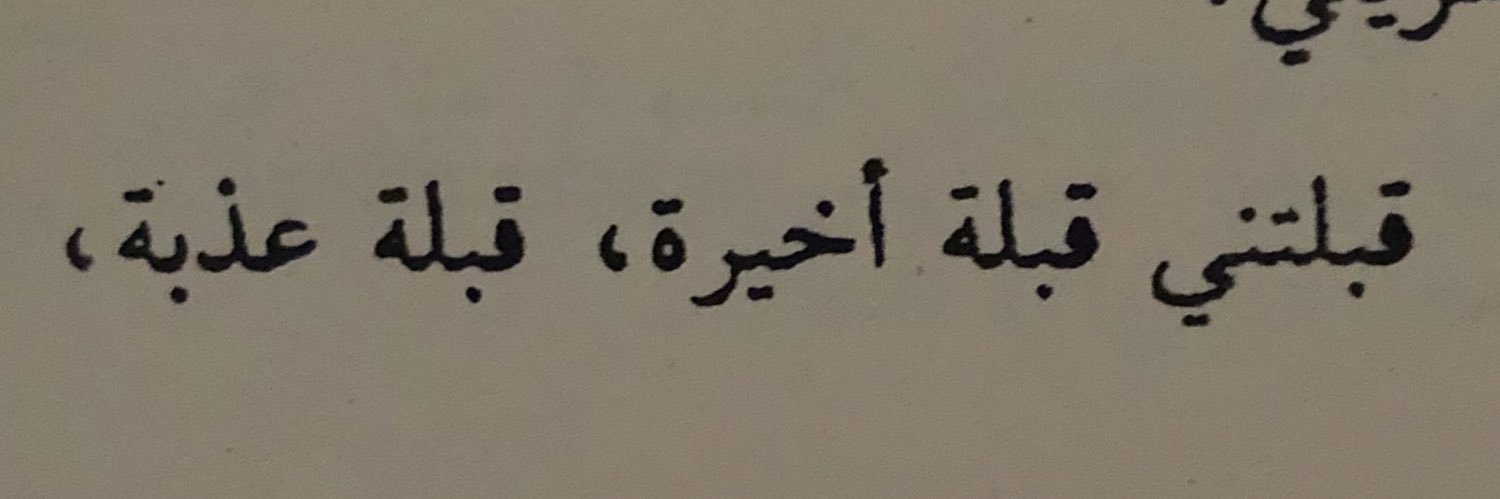 قبلتني قبلة أخيرة، قبلة عذبة،